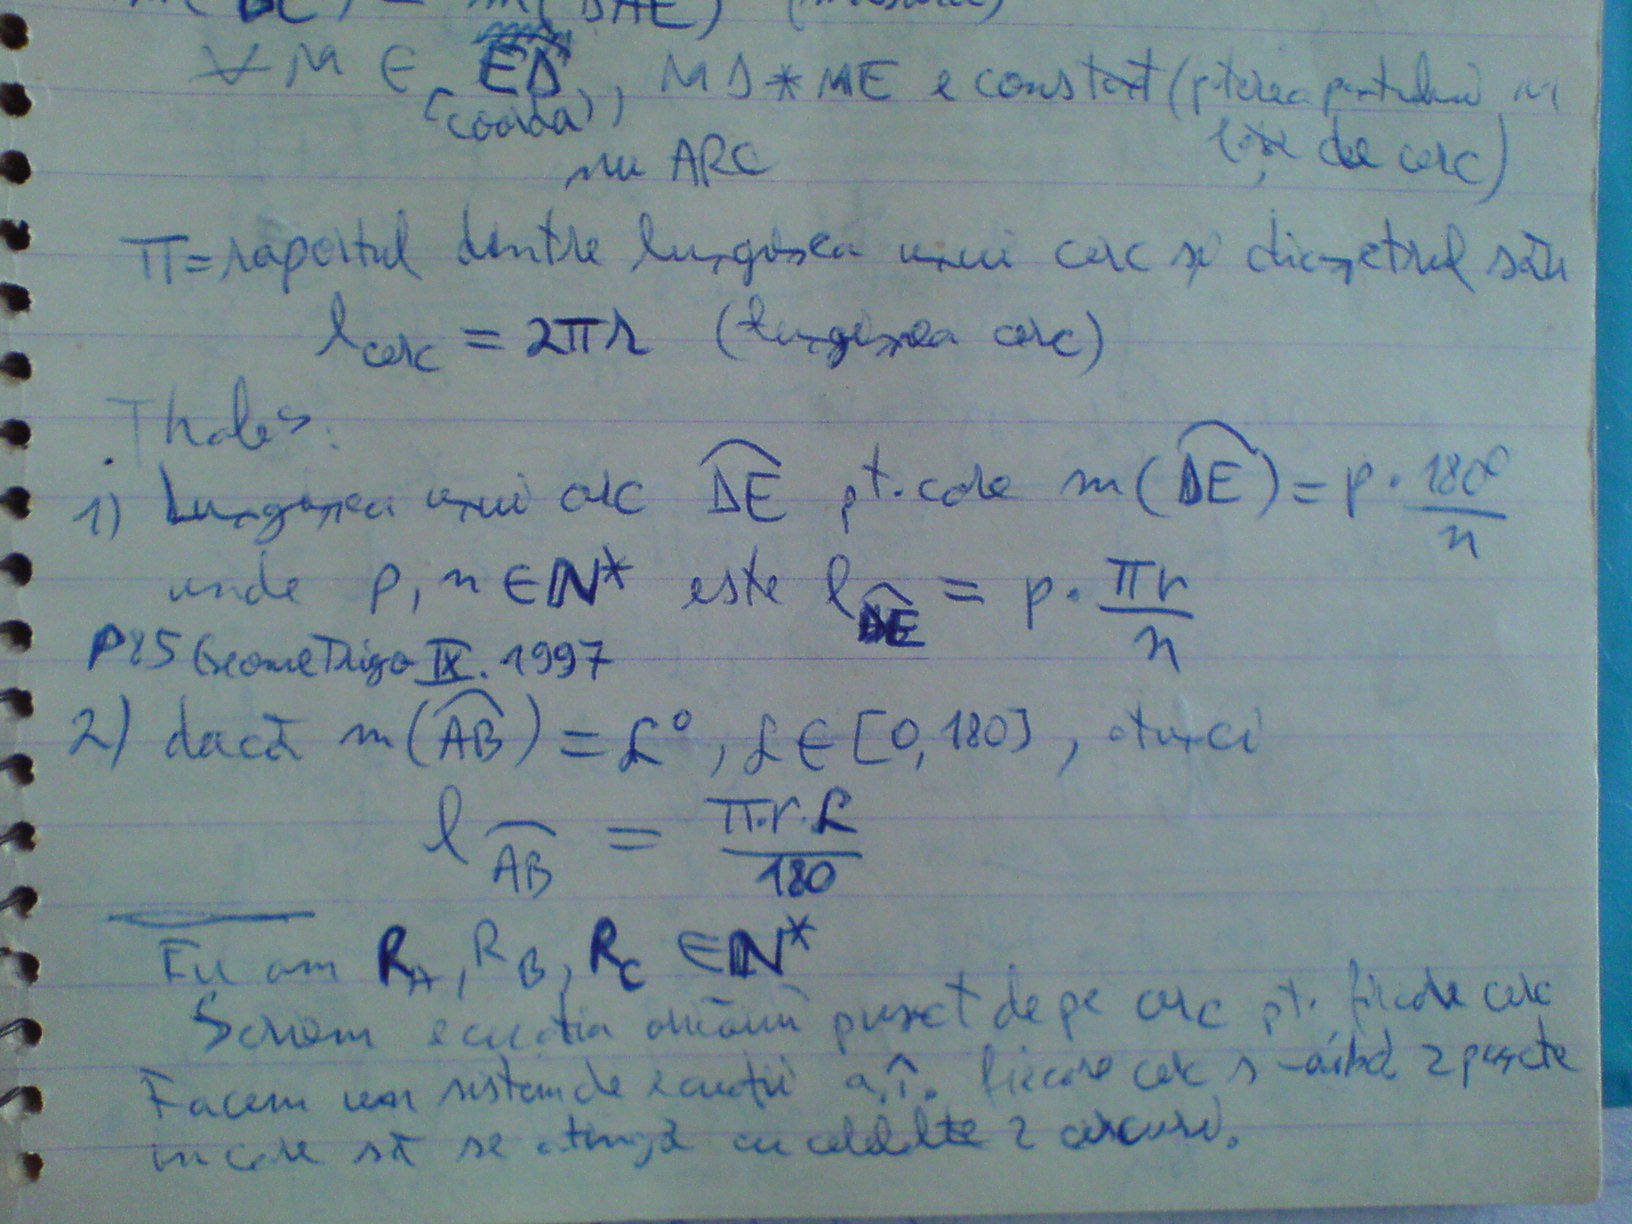 ∀ M ∈ ED, MD * ME e constant (puterea punctului M
(coarda)
nu ARC
față de cerc)
π = raportul dintre lungimea unui cerc și diametrul său
l cerc = 2πr (lungimea cerc)
Thales:
1) Lungimea unui arc DE pt. care m(DE) = p · 180°/n
unde p, n ∈ N* este l DE = p · πr/n
P85 Geometrigo IX. 1997
2) dacă m(AB) = α°, α ∈ [0, 180], atunci
l AB = π·r·α/180
Eu am R_A, R_B, R_C ∈ N*
Scriem ecuația oricărui punct de pe arc pt. fiecare cerc
Facem un sistem de ecuații a.î. fiecare cerc s-aibă 2 puncte
în care să se atingă cu celelalte 2 cercuri.